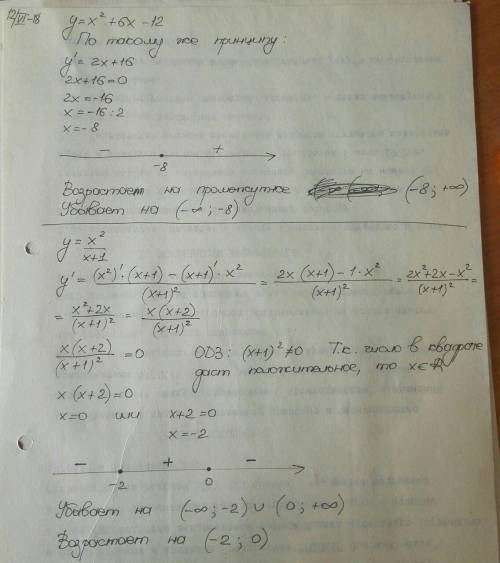 12/VI-18
y = x² + 6x - 12
По такому же принципу:
y' = 2x + 16
2x + 16 = 0
2x = -16
x = -16 : 2
x = -8
- +
-8
Возрастает на промежутке (-8; +∞)
Убывает на (-∞; -8)
y = x²/(x+1)
y' = ((x²)' · (x+1) - (x+1)' · x²)/(x+1)² = (2x(x+1) - 1·x²)/(x+1)² = (2x²+2x-x²)/(x+1)² =
= (x²+2x)/(x+1)² = x(x+2)/(x+1)²
x(x+2)/(x+1)² = 0 ОДЗ: (x+1)² ≠ 0 Т.к. число в квадрате
даст положительное, то x∈R
x(x+2) = 0
x = 0 или x+2 = 0
x = -2
- + -
-2 0
Убывает на (-∞; -2) ∪ (0; +∞)
Возрастает на (-2; 0)